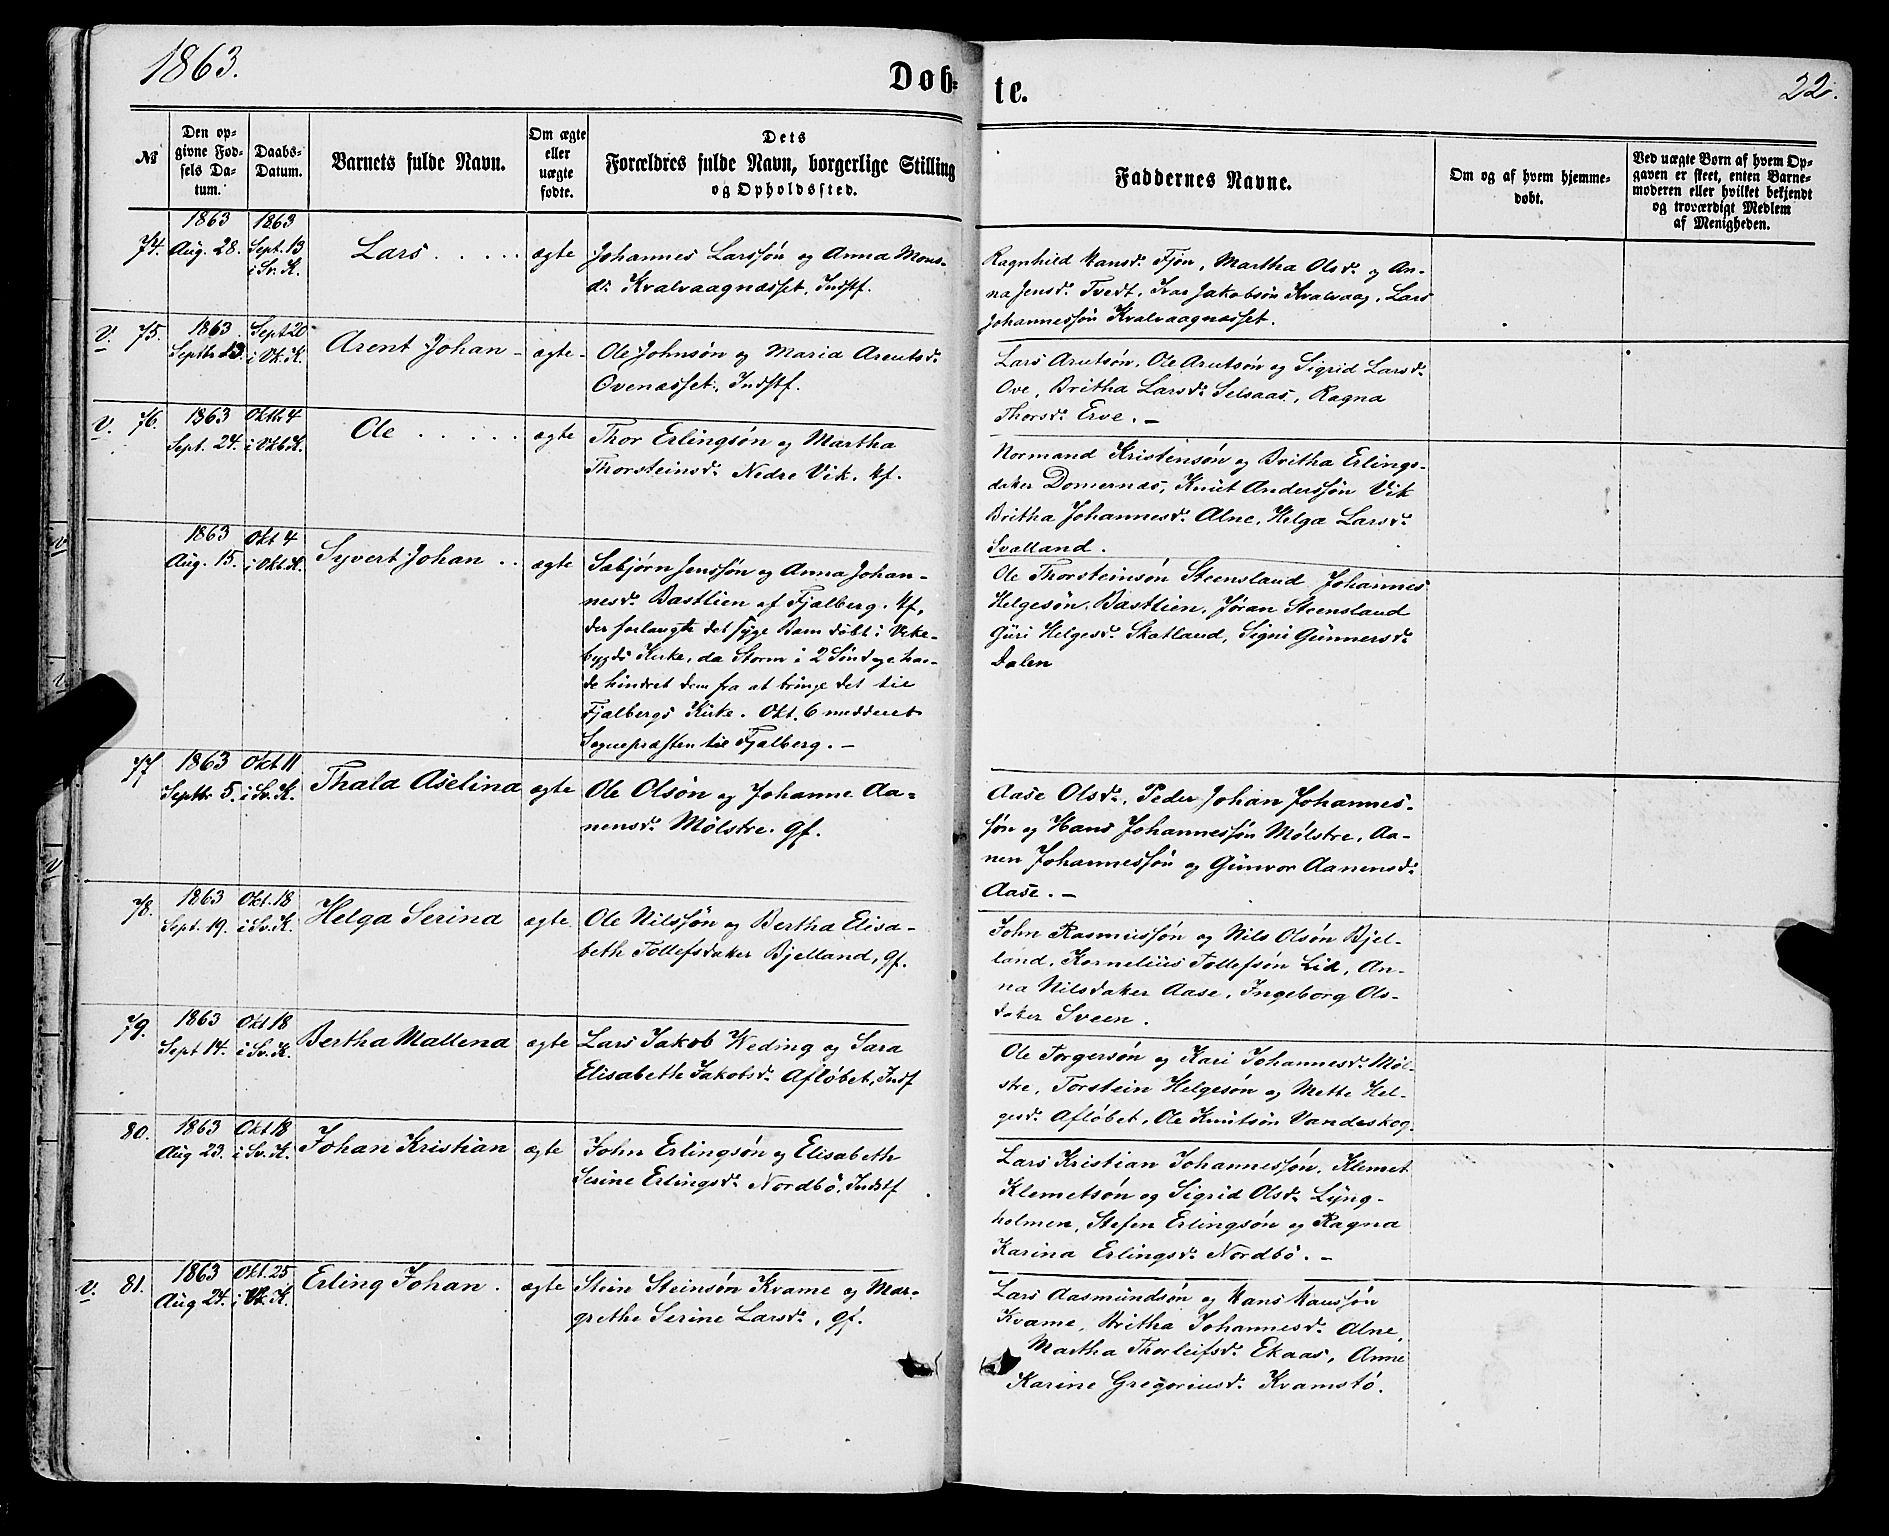 1863.
Døb-
te.
22.
№
Den op-
givne Fød-
sels Da-
tum.
Daabs-
Datum.
Barnets fulde Navn.
Om ægte
eller
uægte
fødte.
Dets
Forældres fulde Navn, borgerlige Stilling
og Opholdssted.
Faddernes Navne.
Om og af hvem hjemme-
døbt.
Ved uægte Børn af hvem Op-
gaven er skeet, enten Barne-
moderen eller hvilket bekjendt
og troværdigt Medlem
af Menigheden.
74.
1863
Aug. 28.
1863
Sept. 13
i Sv. K.
Lars . . . .
ægte
Johannes Larssøn og Anna Mons-
dr. Kvalvaagnæsset, Indstf.
Ragnhild Hansdr. Fjon, Martha Olsdr. og An-
na Jensdr. Tvedt, Ivar Jakobsøn Kvalvaag, Lars
Johannessøn Kvalvaagnæsset.
V. 75.
1863
Septbr 13.
Sept 20
i Vk. K.
Arent Johan -
ægte -
Ole Johnsøn og Maria Arentsdr.
Ovenæsset, Indstf.
Lars Arntsøn, Ole Arntsøn og Sigrid Larsdr.
Ove, Britha Larsdr. Selsaas, Ragna
Thorsdr. Erve. -
V. 76.
1863
Sept. 24.
Oktbr. 4
i Vkb K.
Ole . . . . .
ægte
Thor Erlingsøn og Martha
Thorsteinsdr. Nedre Vik, Hf.
Normand Kristensøn og Britha Erlings-
datter Dommernæs, Knut Anderssøn Vik
Britha Johannesdr. Alne, Helga Larsdr.
Svalland.
1863
Aug. 15.
Okt 4
i Vkb. K.
Syvert Johan . .
ægte
Sæbjørn Jenssøn og Anna Johan-
nesdr. Bastlien af Fjælberg. Hf,
der forlangte det syge Barn døbt i Vike-
bygds Kirke, da Storm i 2 Søndage hav-
de hindret dem fra at bringe det til
Fjælbergs Kirke. Okt. 6 meddelet
Sognepræsten til Fjælberg. -
Ole Thorsteinsøn Steensland Johannes
Helgesøn, Bastlien, Jøran Steensland
Guri Helgesdr. Skatland, Signi Gunnersdr.
Dalen
77
1863
Septbr 5.
Okt 11
i Sv. K.
Thala Aselina
ægte
Ole Olsøn og Johanne Aa-
nensdr. Mølstre. Gf.
Aase Olsdr., Peder Johan Johannes-
søn og Hans Johannessøn Mølstre, Aa-
nen Johannessøn og Gunvor Aanensdr.
Aase. -
78.
1863
Sept. 19.
Okt. 18
i Sv. K.
Helga Serina
ægte
Ole Nilssøn og Bertha Elisa-
beth Tollefsdatter Bjelland, Gf.
John Rasmussøn og Nils Olsøn Bjel-
land, Kornelius Tollefsøn Lid, An-
na Nilsdatter Aase, Ingeborg Ols-
datter Sveen.
79.
1863
Sept 14.
Okt 18
i Sv. K.
Bertha Mallena
ægte
Lars Jakob Weding og Sara
Elisabeth Jakobsdr. Afløbet, Indf
Ole Torgersøn og Kari Johannesdr. Møl-
stre, Torstein Helgesøn og Mette Hel-
gesdr. Afløbet, Ole Knutsøn Vandeskog.
80.
1863
Aug 23.
Okt 18
i Sv. K.
Johan Kristian
ægte
John Erlingsøn og Elisabeth
Serine Erlingsdr. Nordbø, Indstf
Lars Kristian Johannessøn, Klemet
Klemetsøn og Sigrid Olsdr. Lyng-
holmen, Stefen Erlingsøn og Ragna
Karina Erlingsdr. Nordbø. -
V. 81.
1863
Aug 24.
Okt. 25
i Vk. K.
Erling Johan .
ægte
Stein Steinsøn Kvame og Mar-
grethe Serine Larsdr., Gf.
Lars Aasmundsøn og Hans Hanssøn
Kvame, Britha Johannesdr. Alne,
Martha Thorleifsdr. Ekaas, Anne
Karine Gregoriusdr. Kvamstø.